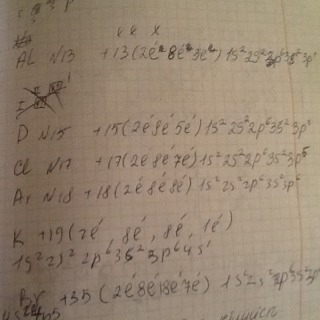 Al N13 +13(2é 8é 3é) 1s² 2s² 2p⁶ 3s² 3p¹
D N15 +15(2é 8é 5é) 1s² 2s² 2p⁶ 3s² 3p³
Cl N17 +17(2é 8é 7é) 1s² 2s² 2p⁶ 3s² 3p⁵
Ar N18 +18(2é 8é 8é) 1s² 2s² 2p⁶ 3s² 3p⁶
K +19(2é, 8é, 8é, 1é)
1s² 2s² 2p⁶ 3s² 3p⁶ 4s¹
Br +35(2é 8é 18é 7é) 1s² 2s² 2p⁶ 3s² 3p⁶